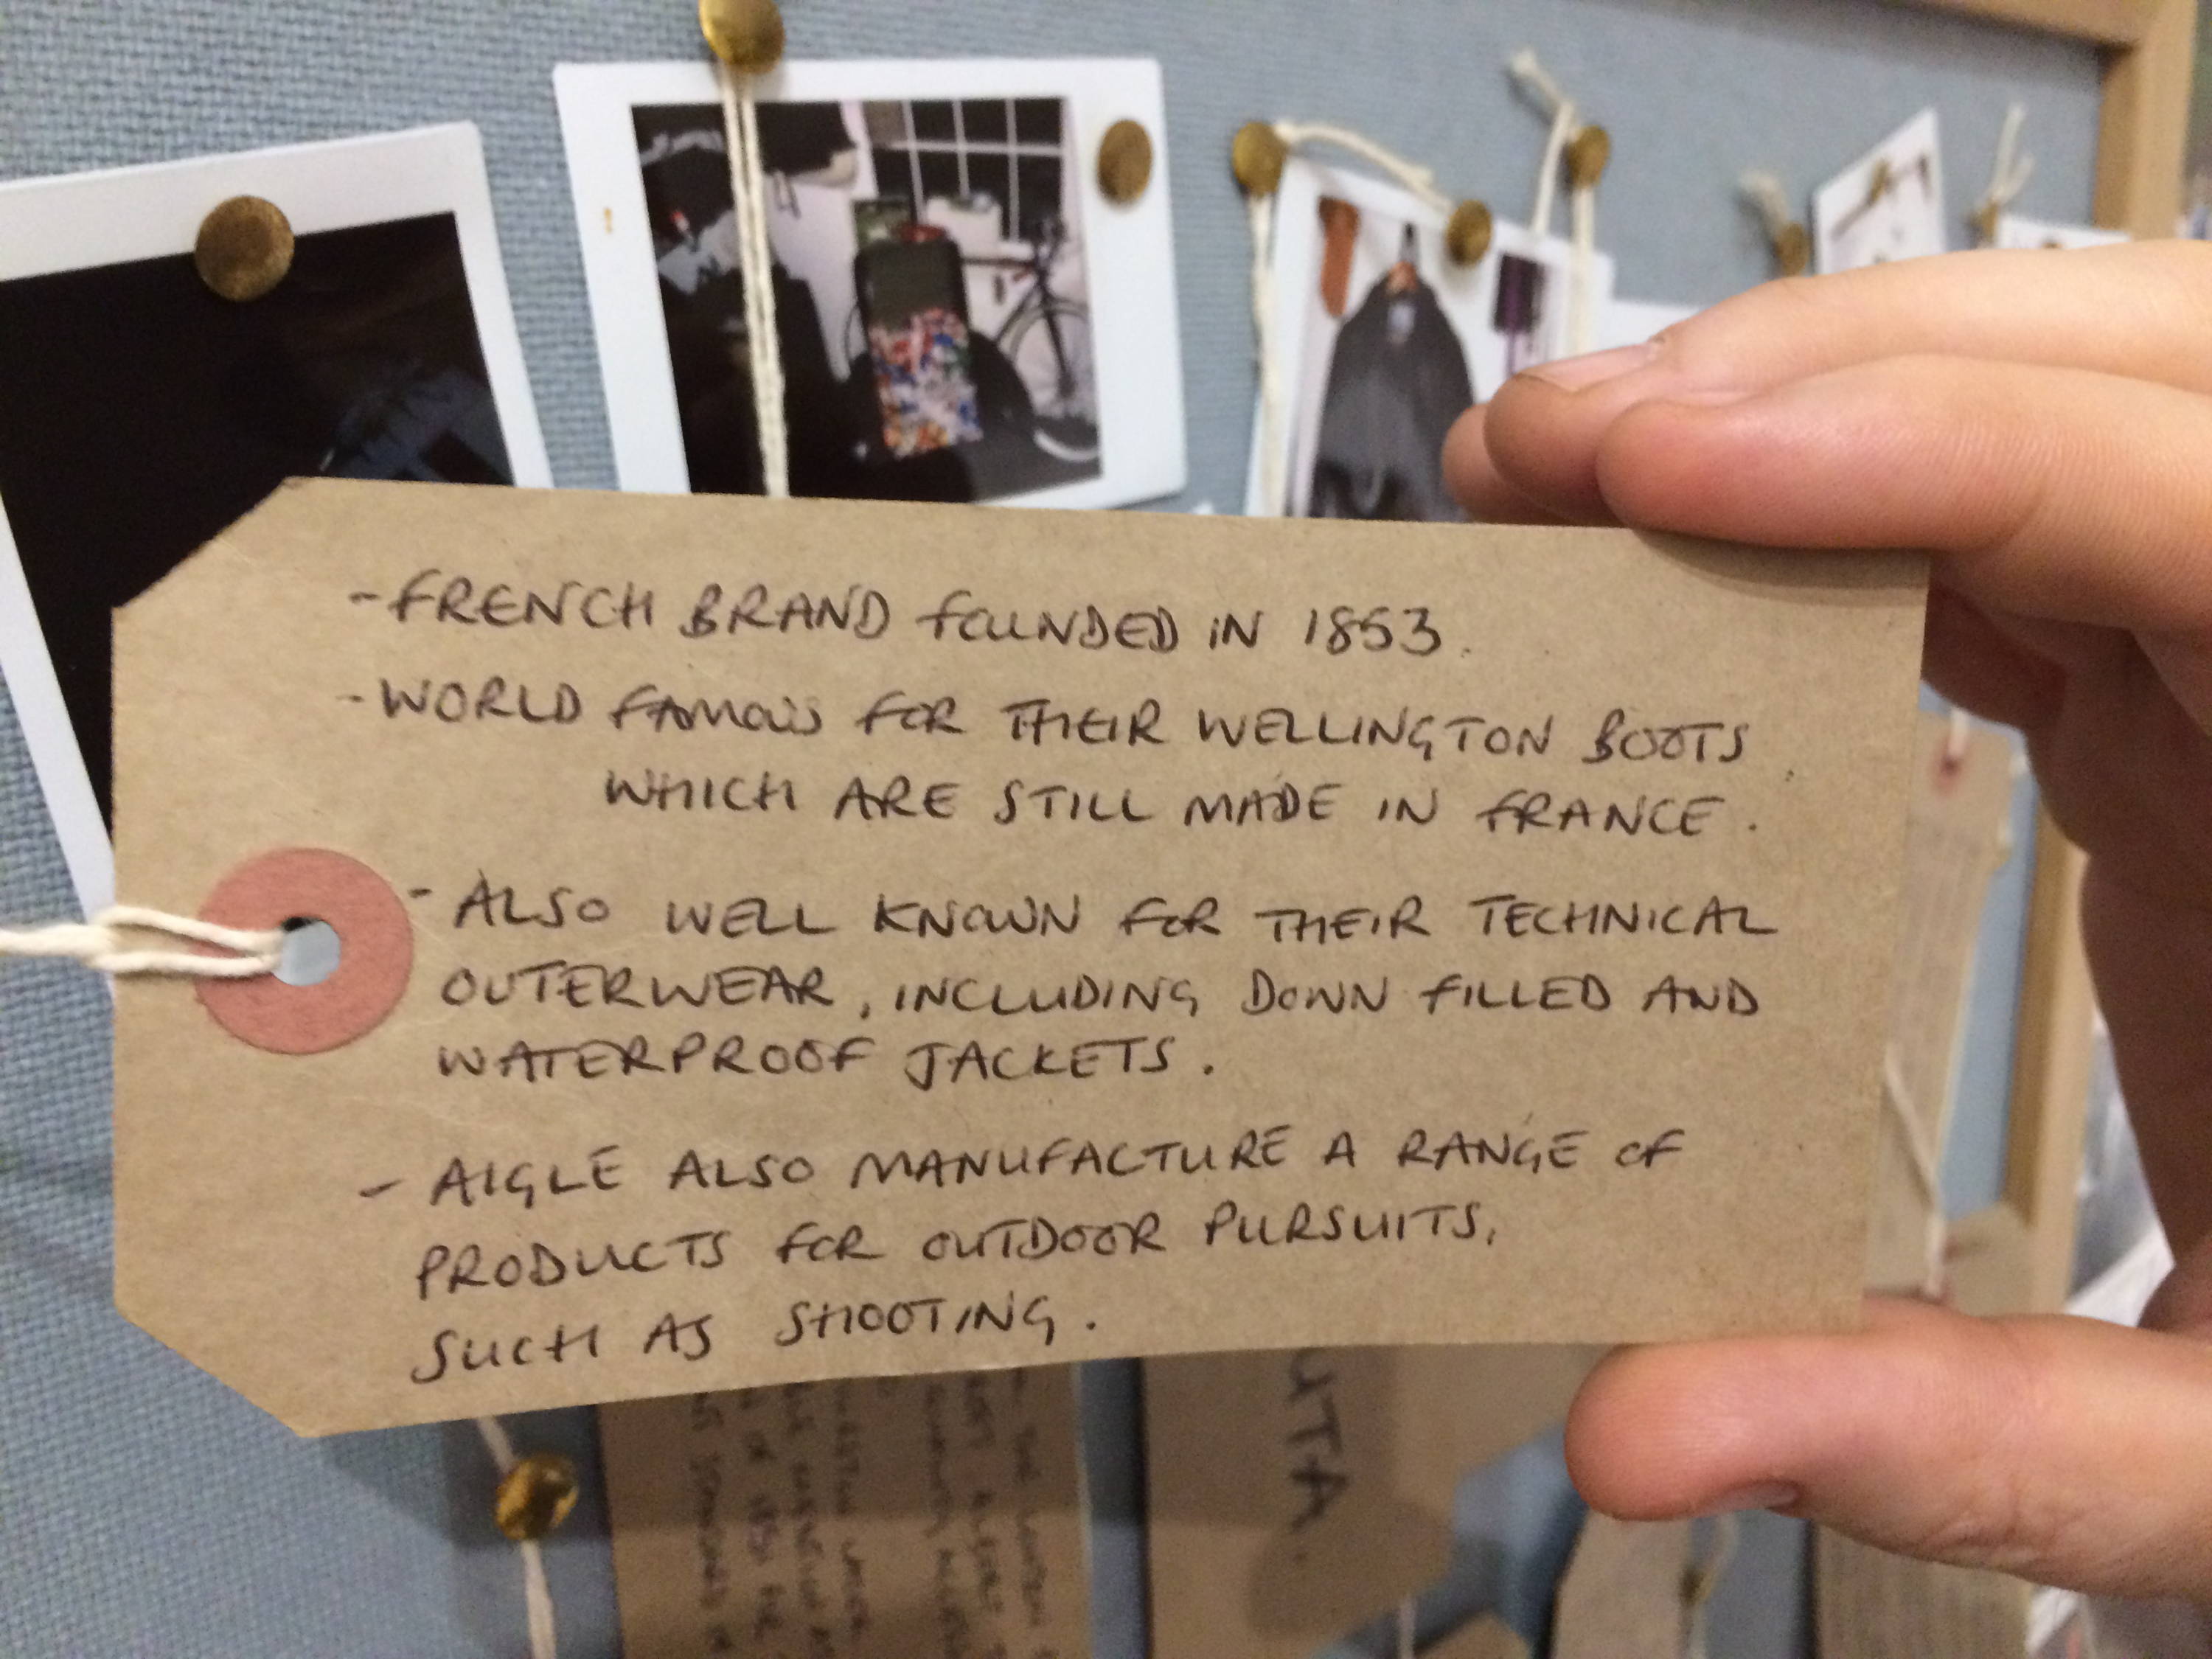 - FRENCH BRAND FOUNDED IN 1853.
- WORLD FAMOUS FOR THEIR WELLINGTON BOOTS
WHICH ARE STILL MADE IN FRANCE.
- ALSO WELL KNOWN FOR THEIR TECHNICAL
OUTERWEAR, INCLUDING DOWN FILLED AND
WATERPROOF JACKETS.
- AIGLE ALSO MANUFACTURE A RANGE OF
PRODUCTS FOR OUTDOOR PURSUITS,
SUCH AS SHOOTING.